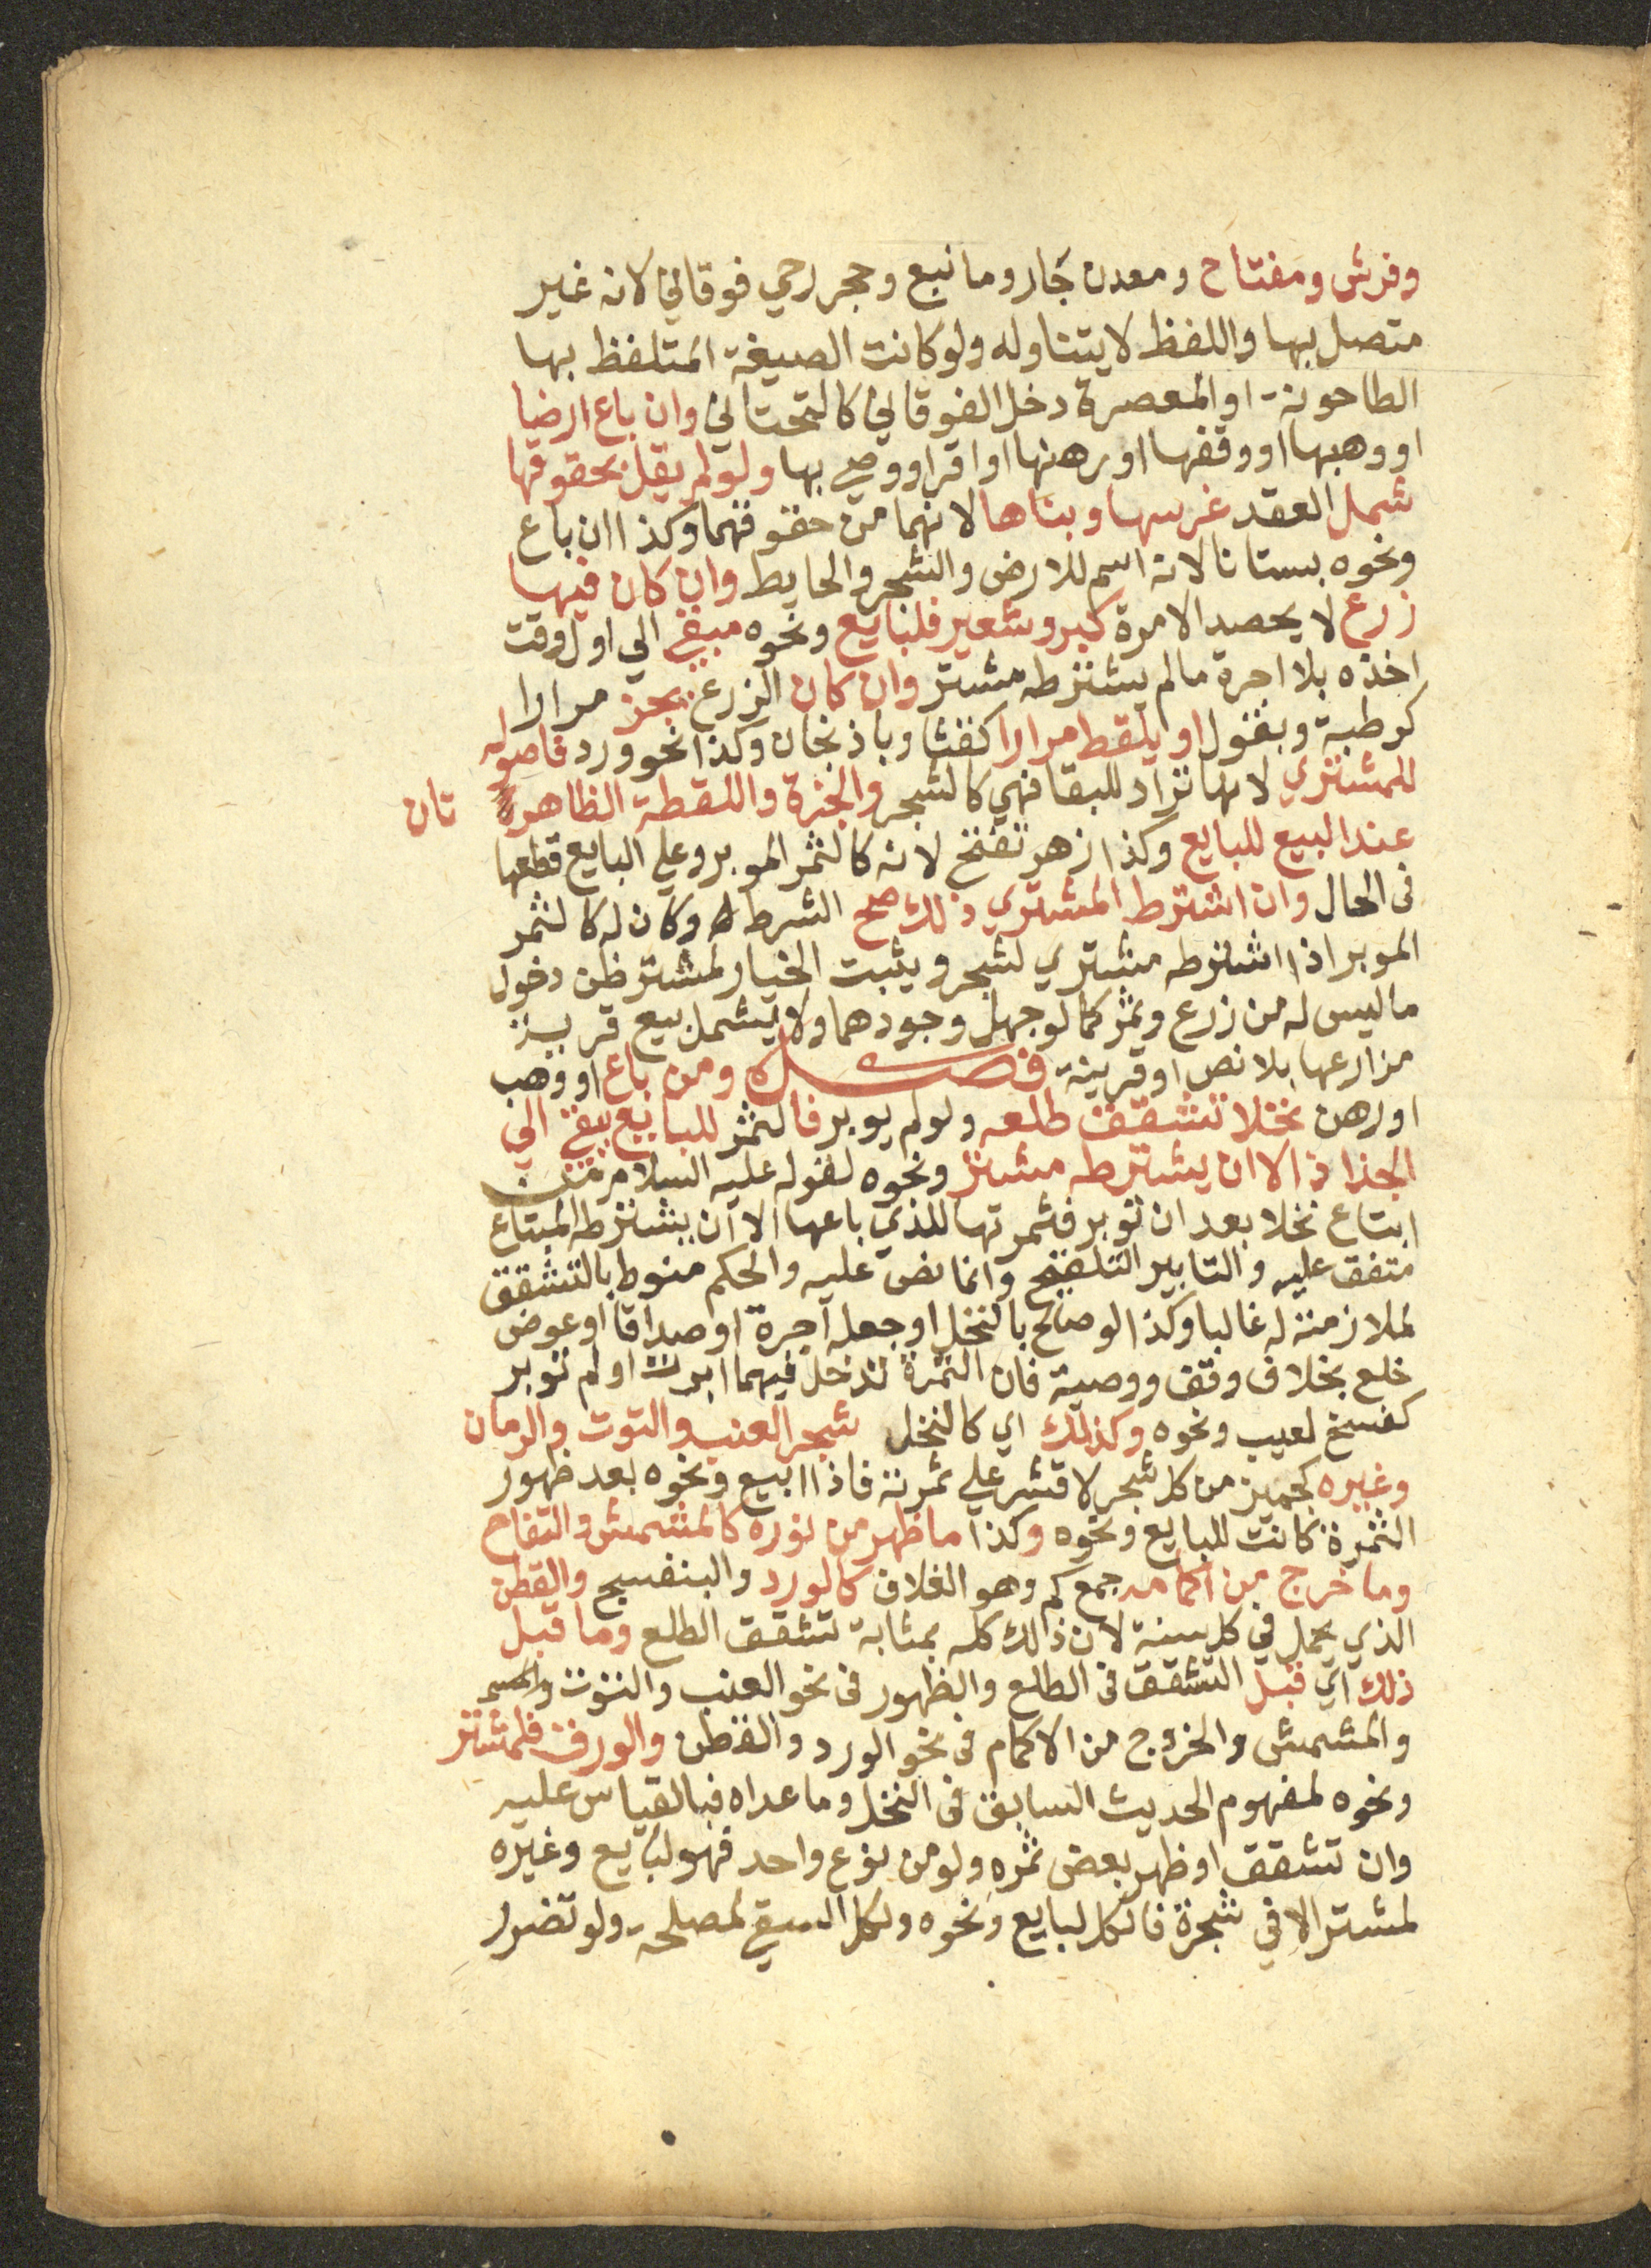 وفرش ومفتاح ومعدن جار وما نبع وحجر رحي فوقاني لانه غير
متصل بها واللفظ لا يتناوله ولو كانت الصيغة المتلفظ بها
الطاحونة او المعصرة دخل الفوقاني كالتحتاني وان باع ارضا
او وهبها او وقفها او رهنها او اقر او وصي بها ولو لم يقل بحقوقها
شمل العقد غرسها وبناها لانهما من حقوقهما وكذا ان باع
ونحوه بستانا لانه اسم للارض والشجر والحايط وان كان فيها
زرع لا يحصد الا مرة كبر وشعير فلبايع ونحوه مبقي الي اول وقت
اخذه بلا اجرة ما لم يشترطه مشتر وان كان الزرع يجز مرارا
كرطبة وبقول او يلقط مرارا كقثا وباذنجان وكذا نحو ورد فاصوله
للمشتري لانها تراد للبقا فهي كالشجر والجزة واللقطة الظاهرة تان
عند البيع للبايع وكذا زهر تفتح لانه كالثمر الموبر وعلي البايع قطعها
في الحال وان اشترط المشتري ذلك صح الشرط وكان له كالثمر
الموبر اذا اشترطه مشتري لشجر ويثبت الخيار لمشتر ظن دخول
ما ليس له من زرع وثمر كما لو جهل وجودهما ولا يشمل بيع قرية
مزارعها بلا نص او قرينة فصل ومن باع او وهب
او رهن نخلا تشقق طلعه ولو لم يوبر فالثمر للبايع يبقي الي
الجذاذ الا ان يشترطه مشتر ونحوه لقوله عليه السلام من
ابتاع نخلا بعد ان توبر فثمرتها للذي باعها الا ان يشترطه المبتاع
متفق عليه والتابير التلقيح وانما نص عليه والحكم منوط بالتشقق
لملازمته له غالبا وكذا لو صالح بالنخل او جعله اجرة او صداقا او عوض
خلع بخلاف وقف ووصية فان الثمرة تدخل فيهما ابرت او لم توبر
كفسخ لعيب ونحوه وكذلك اي كالنخل شجر العنب والتوت والرمان
وغيره كجميز من كل شجر لا قشر علي ثمرته فاذا ابيع ونحوه بعد ظهور
الثمرة كانت للبايع ونحوه وكذا ما ظهر من نوره كالمشمش والتفاح
وما خرج من اكمامه جمع كم وهو الغلاف كالورد والبنفسج والقطن
الذي يحمل في كل سنة لان ذلك كله بمثابة تشقق الطلع وما قبل
ذلك اي قبل التشقق في الطلع والظهور في نحو العنب والتوت
والمشمش والخروج من الاكمام في نحو الورد والقطن والورق فلمشتر
ونحوه لمفهوم الحديث السابق في النخل وما عداه فبالقياس عليه
وان تشقق او ظهر بعض ثمره ولو من نوع واحد فهو لبايع وغيره
لمشتر الا في شجرة فالكل لبايع ونحوه ولكل السقي لمصلحة ولو تضرر